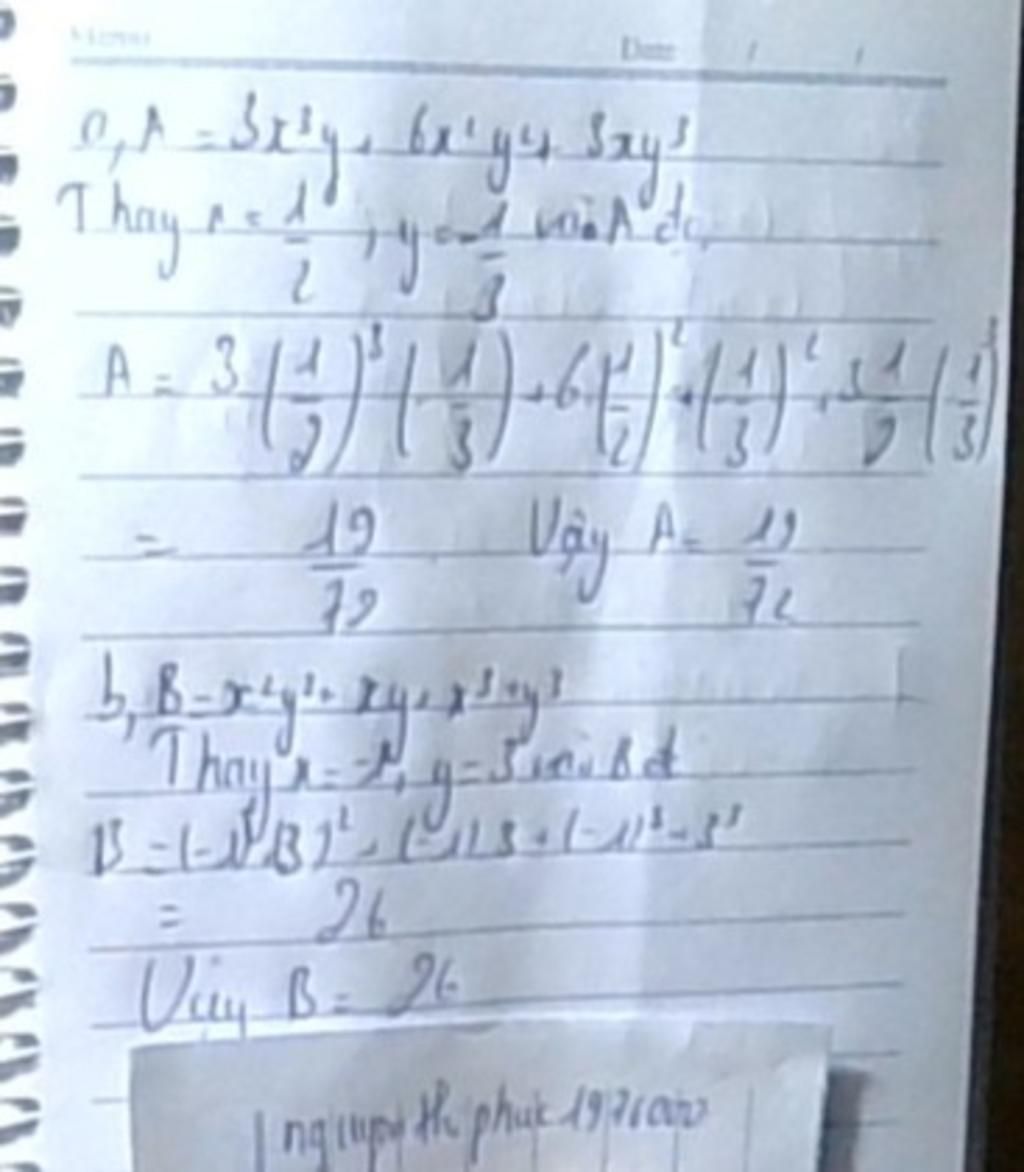 Date / /
a, A = 3x³y + 6x²y² + 3xy³
Thay x = 1/2 , y = -1/3 vào A
A = 3 (1/2)³ (-1/3) + 6 (1/2)² · (-1/3)² + 3 1/2 (-1/3)³
= 19/72 Vậy A = 19/72
b, B = x²y² + xy + x³ + y³
Thay x = -1, y = 3 vào B
B = (-1)² (3)² + (-1) 3 + (-1)³ + 3³
= 26
Vậy B = 26